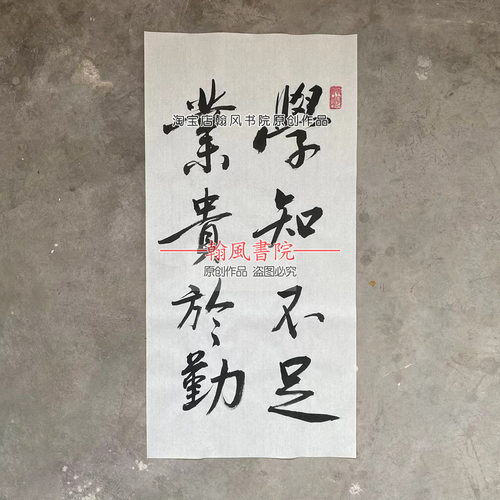 學知不足
業貴於勤
淘宝店翰风书院原创作品
翰風書院
原创作品 盗图必究